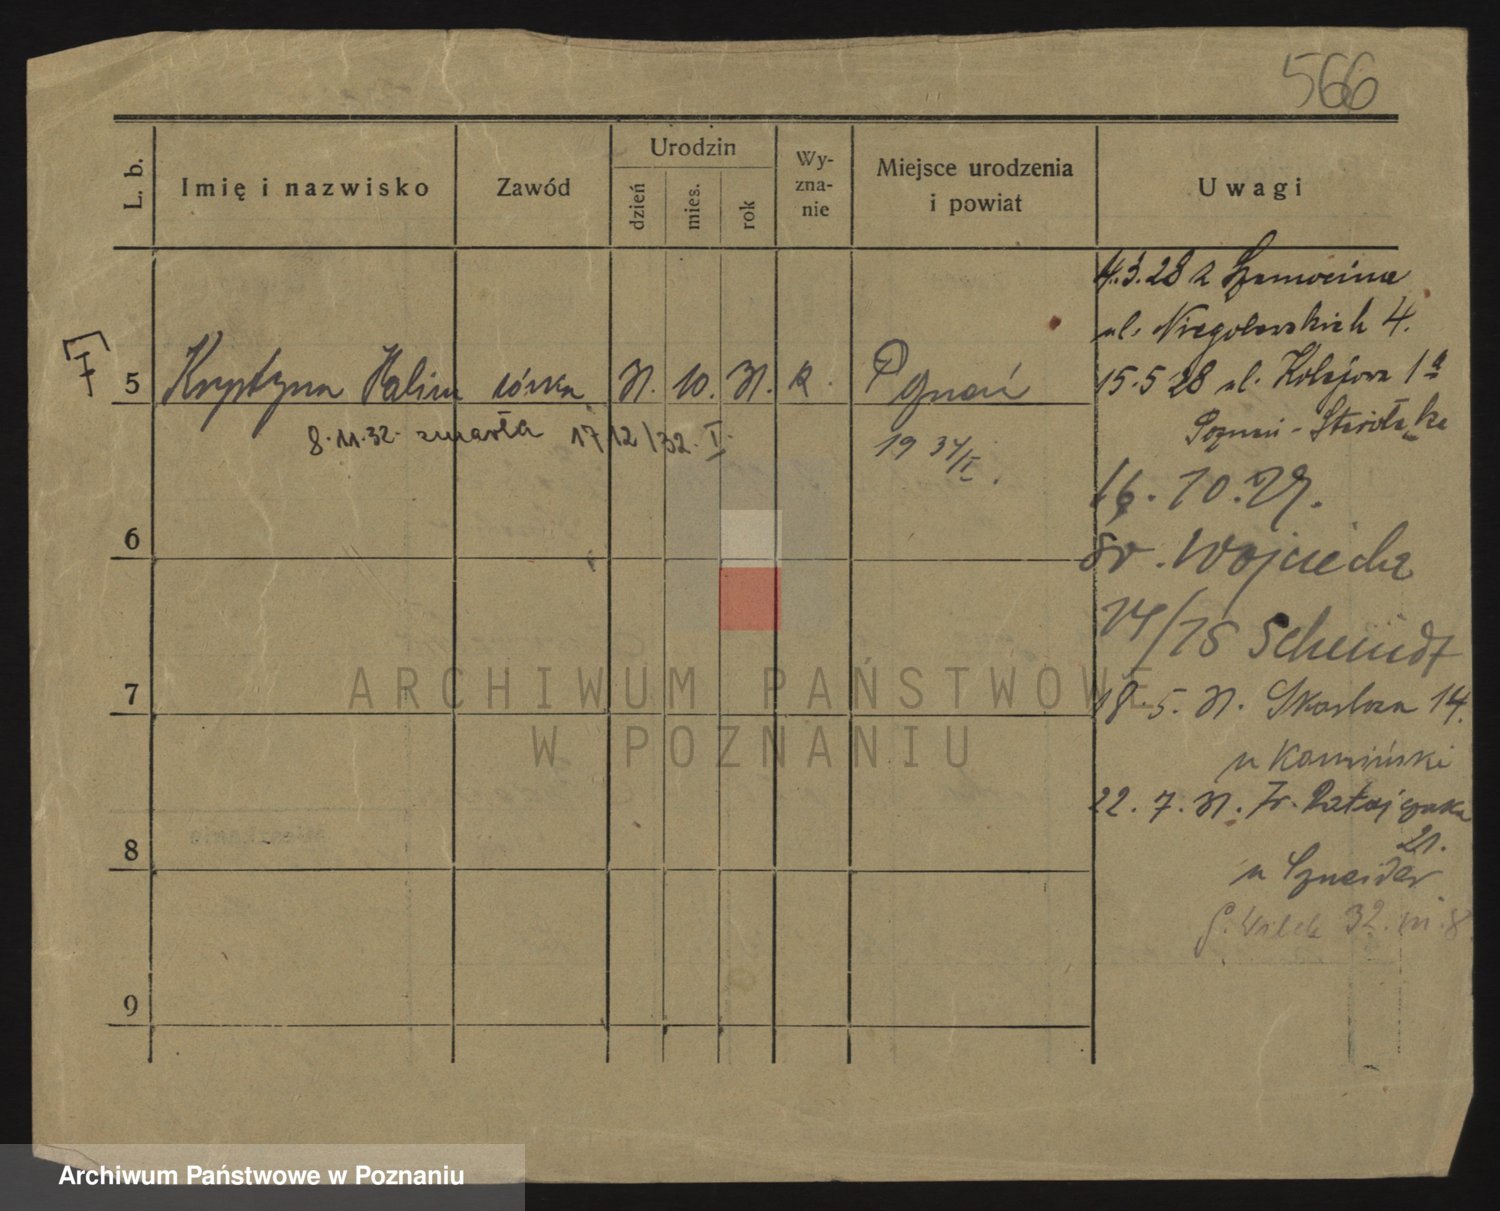 566
L. b.
Imię i nazwisko
Zawód
Urodzin
dzień
mies.
rok
Wy-
zna-
nie
Miejsce urodzenia
i powiat
Uwagi
5 Krystyna Halina córka 31. 10. 31. k. Poznań
8.11.32. zmarła 17/12/32. I.
19 34/I.
6
7
8
9
4.3.28 z Szamocina
ul. Niegolewskich 4.
15.5 28 ul. Kolejowa 1a
Poznań - Starołęka
16. 10. 29.
Św. Wojciecha
14/15 Schmidt
18. 5. 31. Skarbowa 14.
u Kamiński
22. 7. 31. Fr. Ratajczaka
21.
u Sznaider
32. m. 8
ARCHIWUM PAŃSTWOWE
W POZNANIU
Archiwum Państwowe w Poznaniu